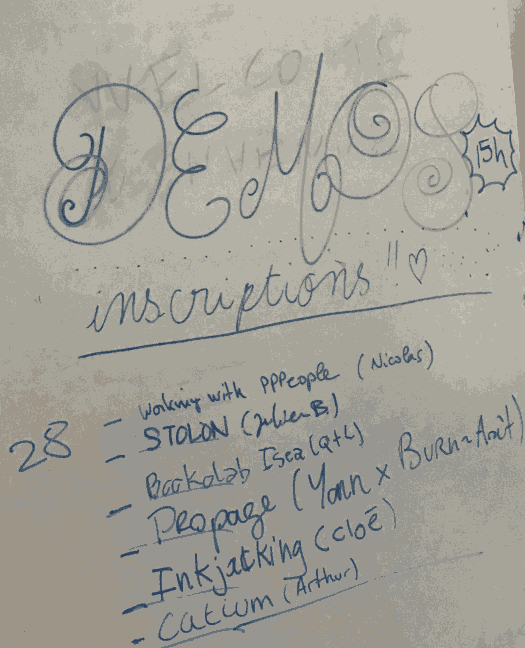 WELCOME
DEMOS
15h
inscriptions !! ♡
28
- Working with PPPeople (Nicolas)
- STOLON (Julien B.)
- Bookolab Isea (Q+L)
- Propage (Yann x
- Inkjacking (Cloë)
- Catium (Arthur)